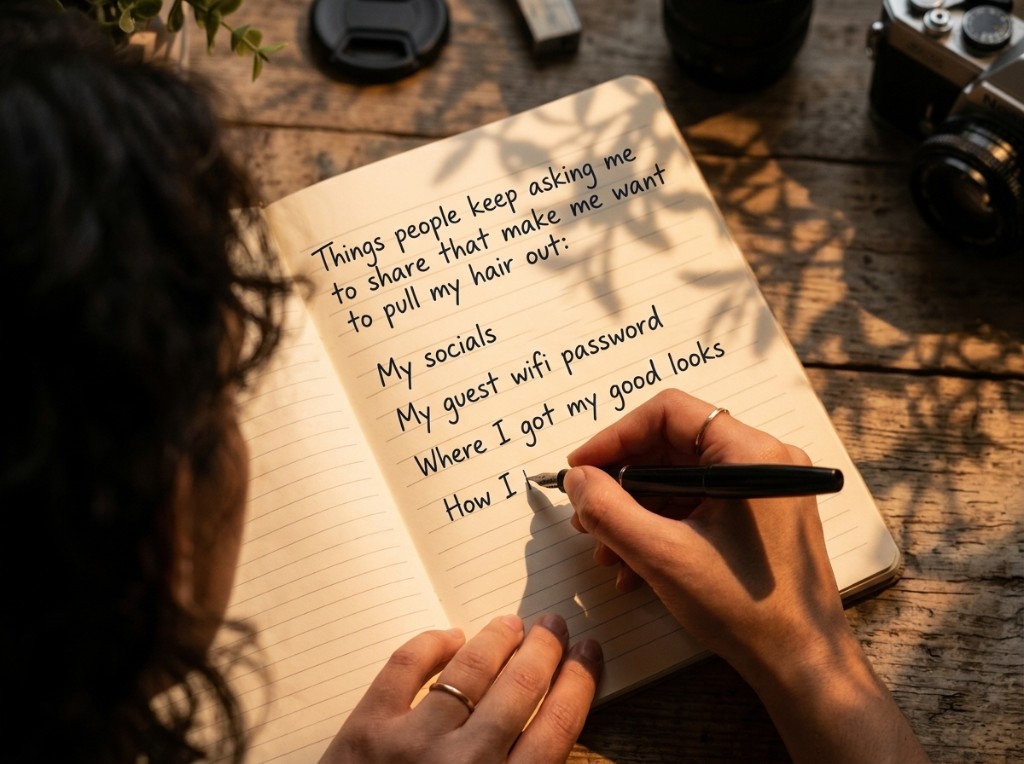 Things people keep asking me
to share that make me want
to pull my hair out:
My socials
My guest wifi password
Where I got my good looks
How I